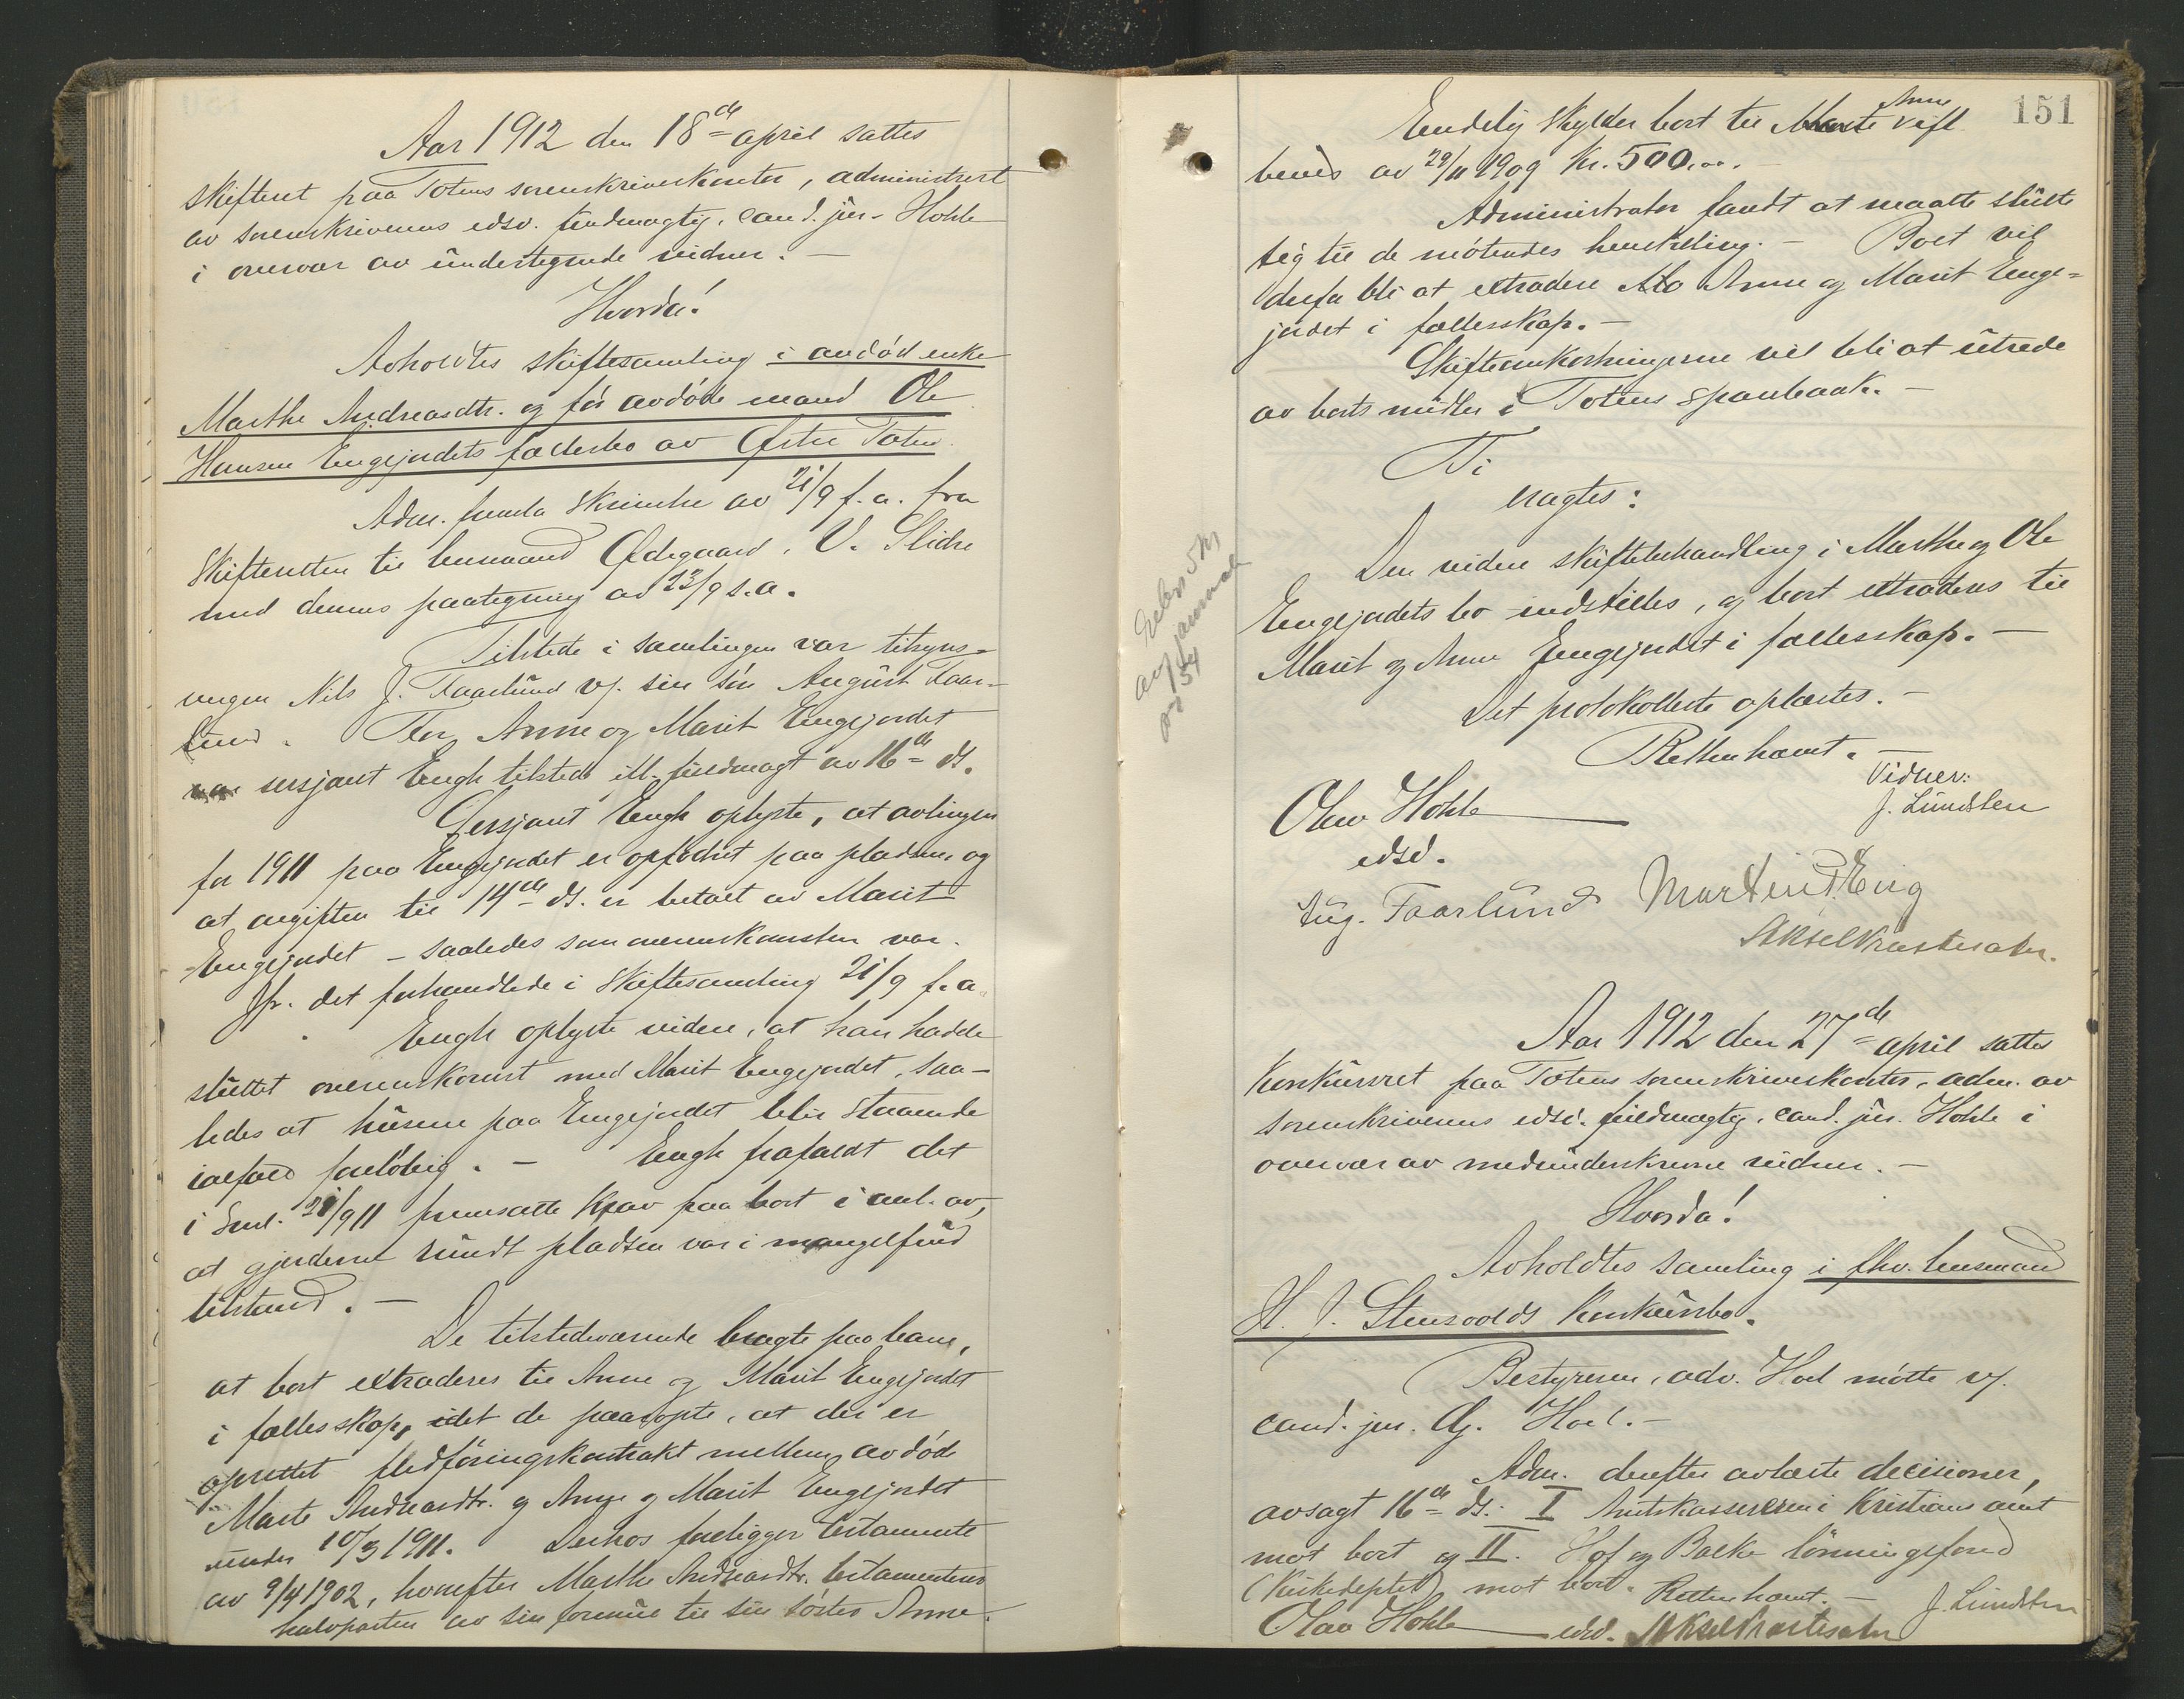 Aar 1912 den 18de april sattes
skifteret paa Totens sorenskriverkontor, administrert
av sorenskriverens edsv. fuldmægtig, cand. jur. Hohle
i overvær av undertegnede vidner. —
Hvorda!
Avholdtes skiftesamling i avdød enke
Marthe Andreasdtr. og før avdøde mand Ole
Hansen Engejordets fællesbo av Østre Toten.
Adm. fremla skrivelse av 21/9 f.a. fra
Skifteretten til lensmand Ødegaard, V. Slidre
med dennes paategning av 23/9 s.a.
Tilstede i samlingen var tilsyns-
mægen Nils J. Faarlund v/. sin søn August Faar-
lund. For Anne og Marit Engejordet
var sersjant Engh tilstede, ifl. fuldmagt av 16de ds.
Sersjant Engh oplyste, at avlingen
for 1911 paa Engejordet er opfodret paa pladsen, og
at avgiften til 14de ds. er betalt av Marit
Engejordet – saaledes som overenskomsten var.
Jfr. det forhandlede i skiftesamling 21/9 f.a.
Engh oplyste videre, at han hadde
sluttet overenskomst med Marit Engejordet, saa-
ledes at husene paa Engejordet blir staaende
ialfald foreløbig. — Engh frafaldt det
i saml. 21/9 11 fremsatte krav paa boet i anl. av,
at gjerderne rundt pladsen var i mangelfuld
tilstand. —
De tilstedeværende bragte paa bane,
at boet extraderes til Anne og Marit Engejordet
i fællesskap, idet de paaropte, at der er
oprettet fledføringskontrakt mellem avdøde
Marte Andreasdtr. og Anne og Marit Engejordet
under 10/3 1911. Derhos foreligger testamente
av 9/4 1902, hvorefter Marthe Andreasdtr. testamenterer
halvparten av sin formue til sin søster Anne.
151
Anne
Endelig skylder boet til Marte ifl.
bevis av 29/11 1909 kr. 500,00.
Administrator fandt at maatte slutte
sig til de møtendes henstilling. — Boet vil
derfor bli at extradere Anne og Marit Enge-
jordet i fællesskap. —
Skifteomkostningerne vil bli at utrede
av boets midler i Totens sparebank. —
Ti
eragtes:
Den videre skiftebehandling i Marthe og Ole
Engejordets bo indstilles, og boet extraderes til
Marit og Anne Engejordet i fællesskap. —
Det protokollerte oplæstes. —
Retten hævet. —
Vidner:
Olav Hohle
J. Lundsten
edsv.
Aug. Faarlund Martin Eng
Aksel
og 154
Aar 1912 den 27de april sattes
Konkursret paa Totens sorenskriverkontor, adm. av
sorenskriverens edsv. fuldmægtig, cand. jur. Hohle i
overvær av medunderskrevne vidner. —
Hvorda!
Avholdtes samling i fhv. lensmand
H. J. Stensvolds konkursbo.
Bestyreren, adv. Hoel møtte v/.
cand. jur. Hoel. —
Adm. derefter avlæste decisioner,
avsagt 16de ds: I Amtskassereren i Kristians amt
mot boet og II. Hof og Balke lønningsfond
(Kirkedeptet) mot boet. Retten hævet. —
J. Lundsten
Olav Hohle edsv. Aksel